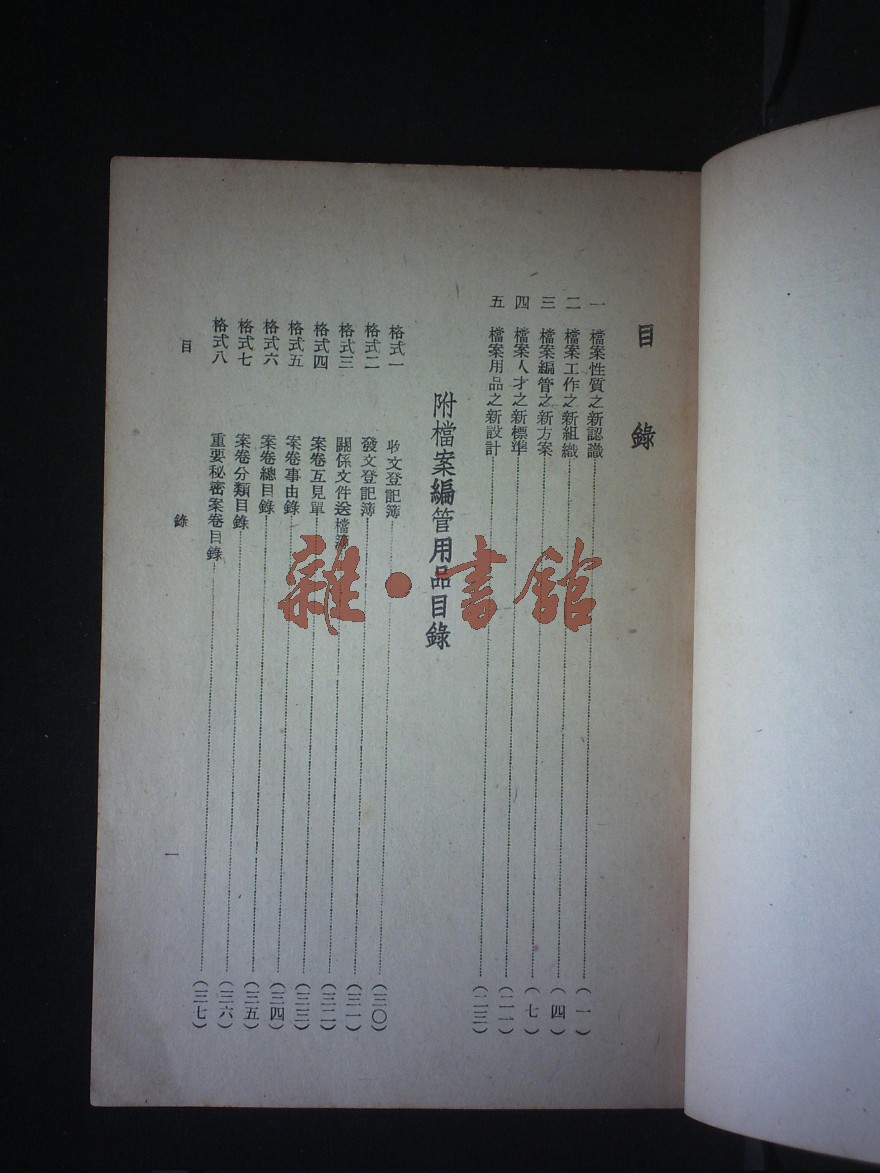 目錄
一 檔案性質之新認識………(一)
二 檔案工作之新組織………(四)
三 檔案編管之新方案………(七)
四 檔案人才之新標準………(二一)
五 檔案用品之新設計………(二三)
附檔案編管用品目錄
格式一 收文登記簿………(三〇)
格式二 發文登記簿………(三一)
格式三 關係文件送檔簿………(三二)
格式四 案卷互見單………(三三)
格式五 案卷事由錄………(三四)
格式六 案卷總目錄………(三五)
格式七 案卷分類目錄………(三六)
格式八 重要秘密案卷目錄………(三七)
目錄 一
雜·書館